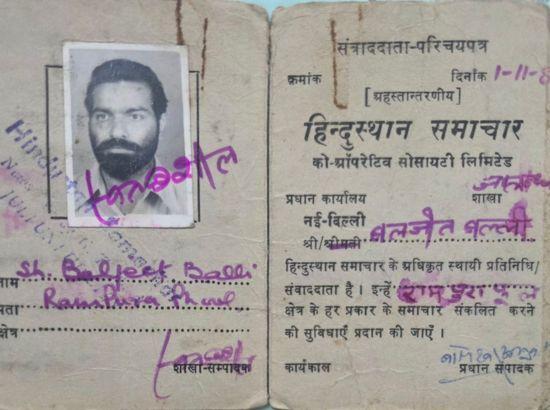 नाम Sh. Baljeet Balli
Rampura Phul
क्षेत्र
शाखा-सम्पादक
संवाददाता-परिचयपत्र
क्रमांक दिनाँक 1-11-8
[अहस्तान्तरणीय]
हिन्दुस्थान समाचार
को-ऑपरेटिव सोसायटी लिमिटेड
प्रधान कार्यालय शाखा
नई-दिल्ली
श्री/श्रीमती बलजीत बल्ली
हिन्दुस्थान समाचार के अधिकृत स्थायी प्रतिनिधि/
संवाददाता है। इन्हें रामपुरा फूल
क्षेत्र के हर प्रकार के समाचार संकलित करने
की सुविधाएँ प्रदान की जाएँ।
कार्यकाल प्रधान संपादक